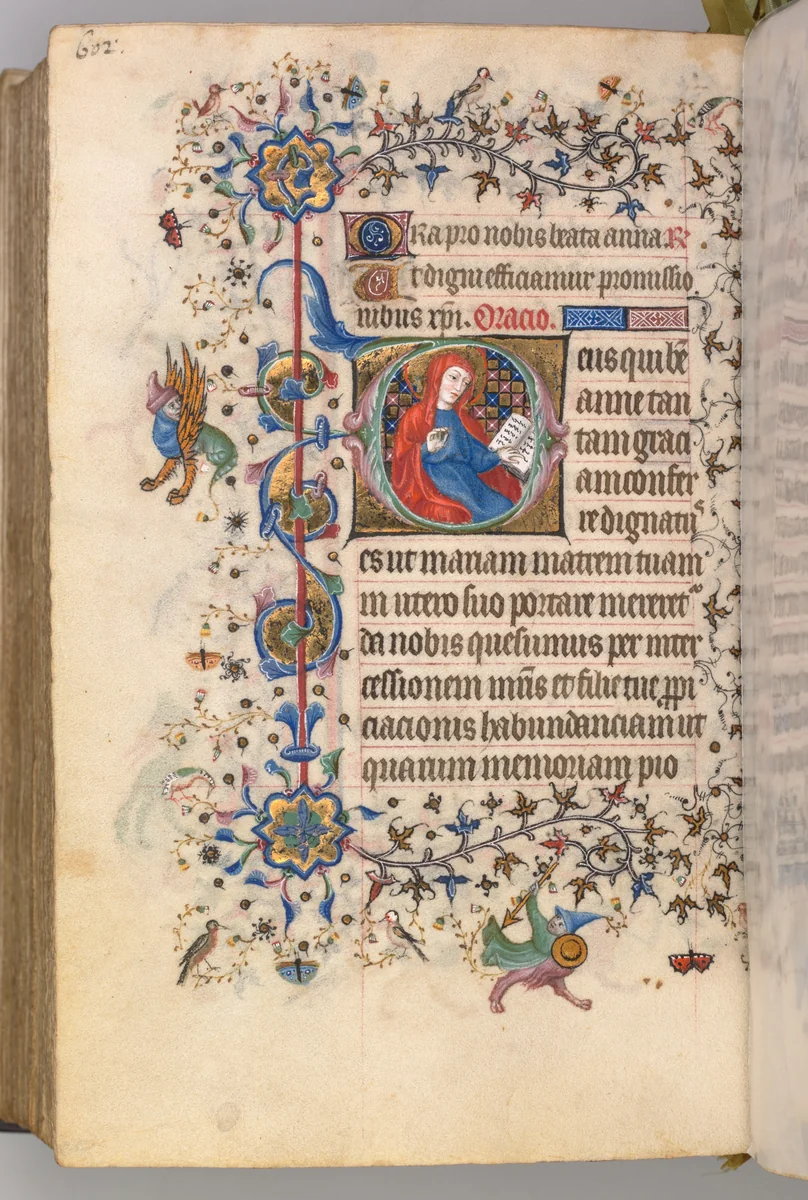 602.
Ora pro nobis beata anna. R
Et digni efficiamur promissio
nibus xpi. Oracio.
Deus qui be
anne tan
tam graci
am confer
re dignatus
es ut mariam matrem tuam
in utero suo portare meret
da nobis quesumus per inter
cessionem mris et filie tue ppi
ciacionis habundanciam ut
quarum memoriam pio